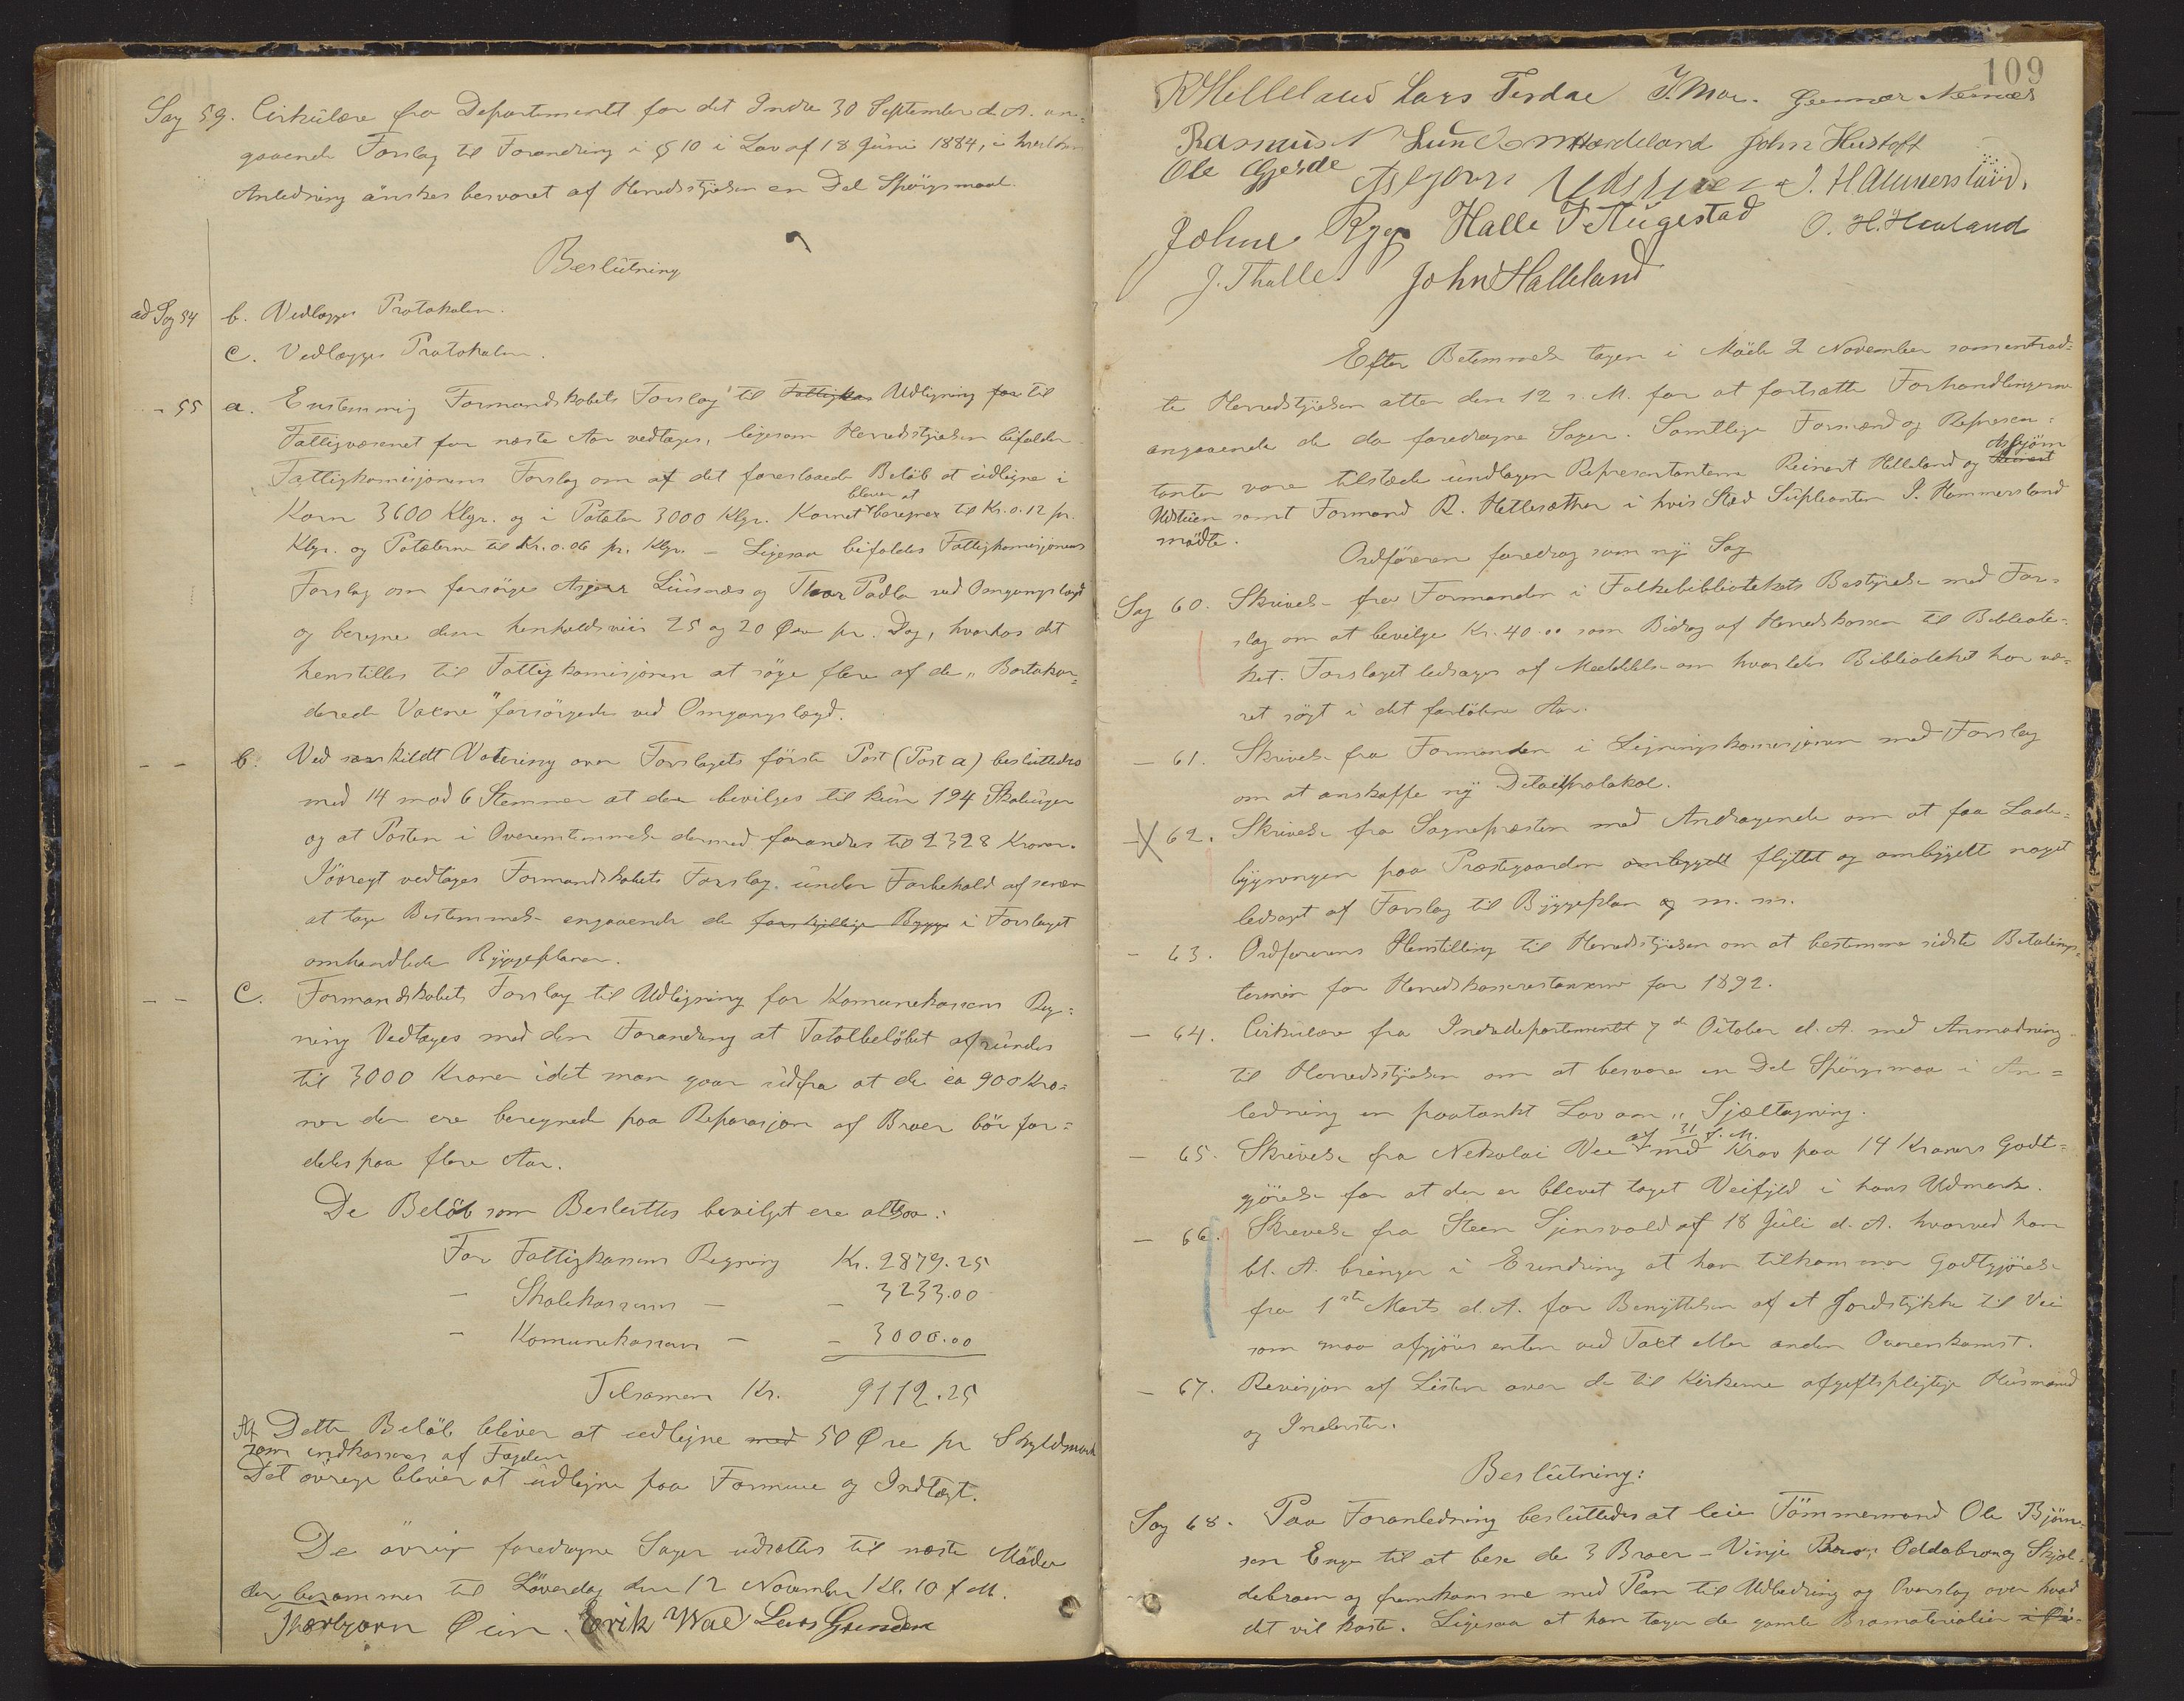 Sag 59. Cirkulære fra Departementet for det Indre 30 September d. A. an=
gaaende Forslag til Forandring i § 10 i Lov af 18 Juni 1884, i hvilken
Anledning ønskes besvaret af Herredsstyrelsen en Del Spørgsmaal.
Beslutning
ad Sag 54 b. Vedlægges Protokolen.
c. Vedlægges Protokolen.
- 55 a. Enstemmig Formandskabets Forslag til Fattigkas Udligning for til
Fattigvæsenet for næste Aar vedtages, ligesom Herredsstyrelsen bifalder
Fattigkomisjonens Forslag om af det foreslaaede Beløb at udligne i
Korn 3600 Klgr. og i Potæter 3000 Klgr. Kornet bliver at beregnes til Kr. 0.12 pr.
Klgr. og Potæterne til Kr. 0.06 pr. Klgr. – Ligesaa bifaldes Fattigkomisjonens
Forslag om forsørge Asgjær Liusnæs og Thor Padla ved Omgangslægd
og beregne dem henholdsviis 25 og 20 Øre pr. Dag, hvorhos det
henstilles til Fattigkomisjonen at søge flere af de „Bortakor=
derede Voxne" forsørgede ved Omgangslægd.
- - b. Ved særskildt Votering over Forslagets første Post (Post a) besluttedes
med 14 mod 6 Stemmer at der bevilges til kun 194 Skoleuger
og at Posten i Overenstemmelse dermed forandres til 2328 Kroner.
Iøvrigt vedtages Formandskabets Forslag under Forbehold af senere
at tage Bestemmelse angaaende de forskjellige Bygge i Forslaget
omhandlede Byggeplaner.
- - c. Formandskabets Forslag til Udligning for Komunekassens Reg=
ning Vedtages med den Forandring at Totalbeløbet afrundes
til 3000 Kroner idet man gaar udfra at de ca 900 Kro=
ner der ere beregnede paa Reparasjon af Broer bør for=
deles paa flere Aar.
De Beløb som Besluttes bevilget ere altsaa:
For Fattigkassens Regning Kr. 2879.25
- Skolekassens - - 3233.00
- Komunekassens - - 3000.00
Tilsamen Kr. 9112.25
Af Dette Beløb bliver at udligne med 50 Øre pr Skyldmark
som indkasseres af Fogden
Det øvrige bliver at udligne paa Formue og Indtægt.
De øvrige foredragne Sager udsættes til næste Møde
der berammes til Løverdag den 12 November Kl. 10 f. M.
Thorbjørn Øien. Erik Wae Lars Grinden
109
R Helleland Lars Tesdae J. Moe. Gunnar Næsnæs
Rasmus Lund Hardeland John Hustoft
Ole Gjerde Asbjørn Udstuen J. Hammersland.
Johne Ryg Halle T Hugestad O. H. Heuland
J. Thalle John Halleland
Efter Bestemmelse tagen i Møde 2 November samentraad=
te Herredsstyrelsen atter den 12 s. M. for at fortsætte Forhandlingerne
angaaende de da foredragne Sager. Samtlige Formænd og Represen=
tanter vare tilstæde undtagen Representanterne Reinert Helleland og Reinert Asbjørn
Udstuen samt Formand R. Hetlesæther i hvis Sted Supleanten J. Hammersland
mødte.
Ordføreren foredrog som ny Sag
Sag 60. Skrivelse fra Formanden i Folkebibliotekets Bestyrelse med For=
slag om at bevilge Kr. 40.00 som Bidrag af Herredskassen til Bibliote=
ket. Forslaget ledsages af Meddelelse om hvorledes Biblioteket har væ=
ret søgt i det forløbne Aar.
- 61. Skrivelse fra Formanden i Ligningskomisjonen med Forslag
om at anskaffe ny Detaelprotokol.
- X 62. Skrivelse fra Sognepræsten med Andragende om at faa Lade=
bygningen paa Præstegaarden ombygget flyttet og ombygget noget
ledsaget af Forslag til Byggeplan og m. m.
- 63. Ordførerens Henstilling til Herredsstyrelsen om at bestemme sidste Betalings=
termin for Herredskasserestancerne for 1892.
- 64. Cirkulære fra Indredepartementet 7de October d. A. med Anmodning
til Herredsstyrelsen om at besvare en Del Spørgsmaa i An=
ledning en paatænkt Lov om „Fjæltagning.
- 65. Skrivelse fra Nikolai Vee af 31 f. M. med Krav paa 14 Kroners Godt=
gjørelse for at der er blevet taget Veifyld i hans Udmark.
- 66. Skrivelse fra Steen Sjensvold af 18 Juli d. A. hvorved han
bl. A. bringer i Erindring at han tilkommer Godtgjørelse
fra 1ste Marts d. A. for Benyttelsen af et Jordstykke til Vei
som maa afgjøres enten ved Taxt eller anden Overenskomst.
- 67. Revisjon af Listen over de til Kirkerne afgiftspligtige Husmænd
og Inderster.
Beslutning:
Sag 68. Paa Foranledning besluttedes at leie Tømmermand Ole Bjørn=
sen Enge til at bese de 3 Broer – Vinje Bro, Oddabro og Skjol=
debroen og fremkomme med Plan til Udbedring og Overslag over hvad
det vil koste. Ligesaa at han tager de gamle Bromaterialier